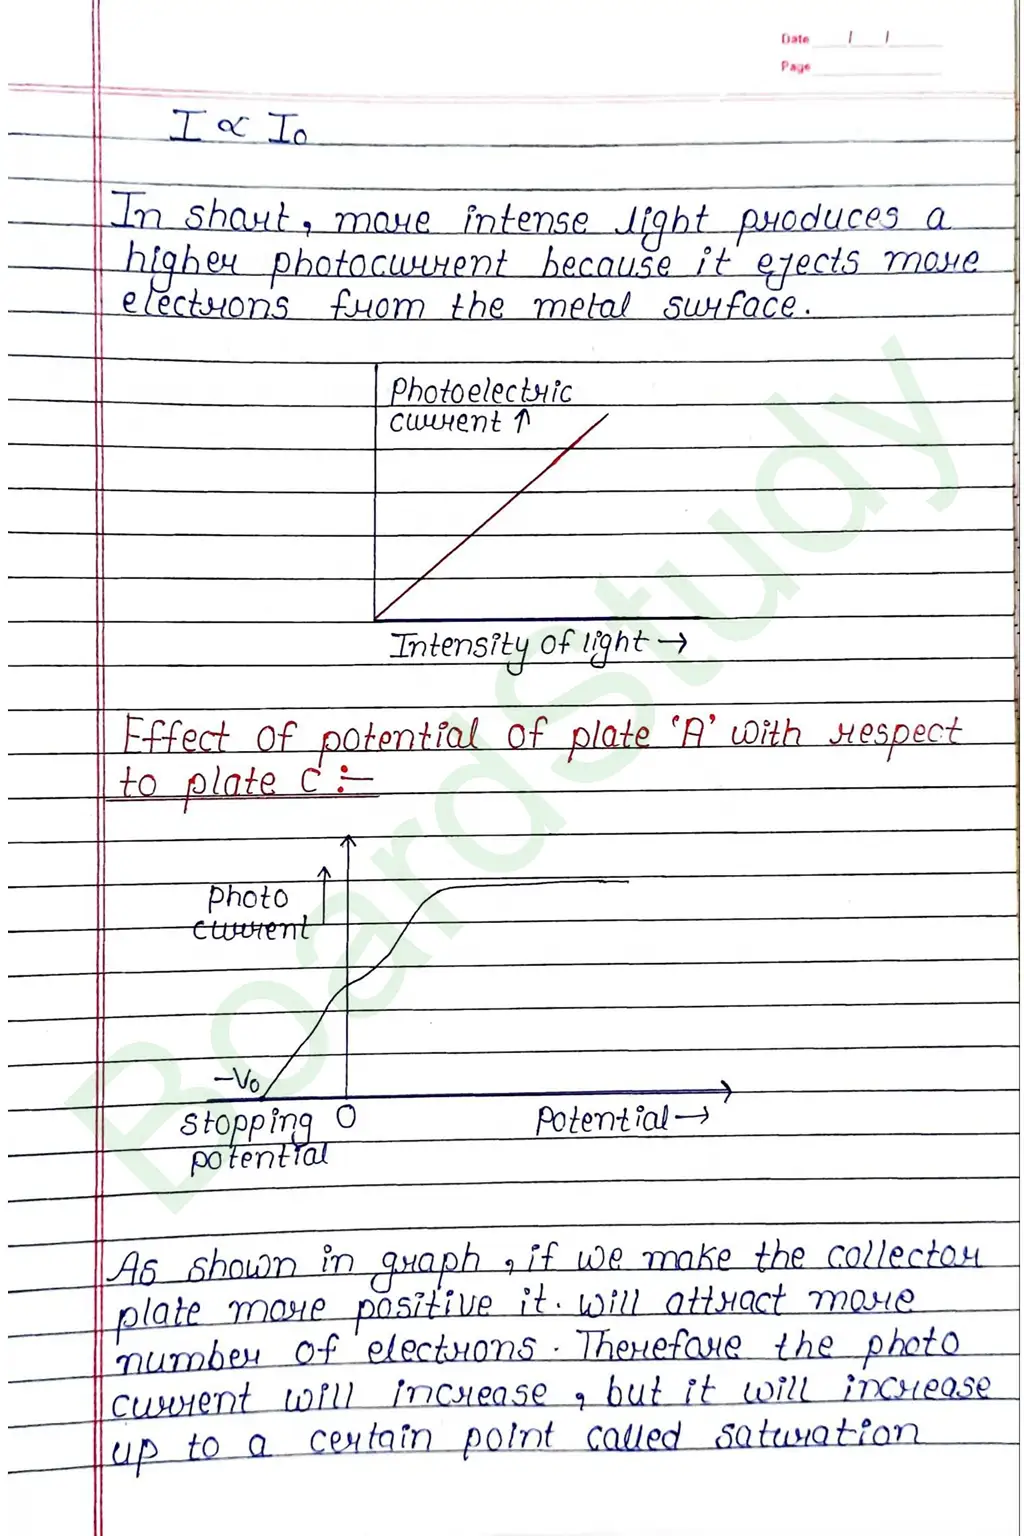 Date / /
Page
I ∝ I₀
In short, more intense light produces a
higher photocurrent because it ejects more
electrons from the metal surface.
Photoelectric
current ↑
Intensity of light →
Effect of potential of plate 'A' with respect
to plate C :-
Photo
current
-V₀
Stopping O
potential
Potential →
As shown in graph, if we make the collector
plate more positive it. will attract more
number of electrons. Therefore the photo
current will increase, but it will increase
up to a certain point called saturation
BoardStudy